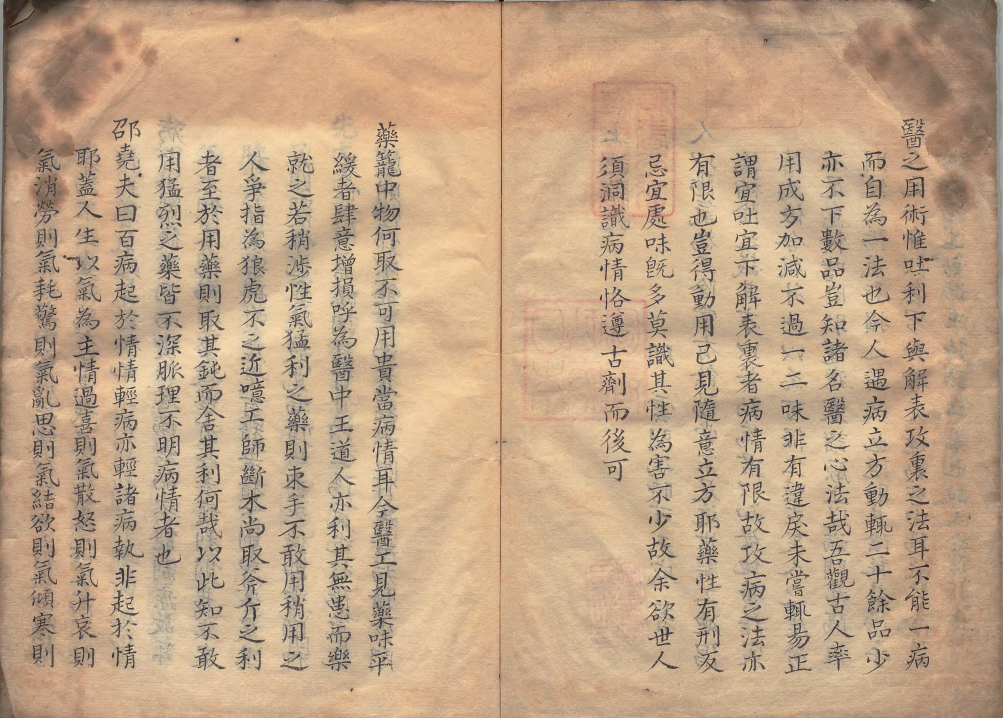 醫之用術惟吐利下與解表攻裏之法耳不能一病
而自為一法也今人遇病立方動輒二十餘品少
亦不下數品豈知諸名醫之心法哉吾觀古人率
用成方加減不過一二味非有違戾未嘗輒易正
謂宜吐宜下解表裏者病情有限故攻病之法亦
有限也豈得動用已見隨意立方耶藥性有刑反
忌宜處味既多莫識其性為害不少故余欲世人
須洞識病情恪遵古劑而後可
藥籠中物何取不可用貴當病情耳今醫工見藥味平
緩者肆意增損呼為醫中王道人亦利其無患而樂
就之若稍涉性氣猛利之藥則束手不敢用稍用之
人爭指為狼虎不之近噫工師斷木尚取斧斤之利
者至於用藥則取其鈍而舍其利何哉以此知不敢
用猛烈之藥皆不深脈理不明病情者也
邵堯夫曰百病起於情情輕病亦輕諸病孰非起於情
耶蓋人生以氣為主情過喜則氣散怒則氣升哀則
氣消勞則氣耗驚則氣亂思則氣結欲則氣傾寒則